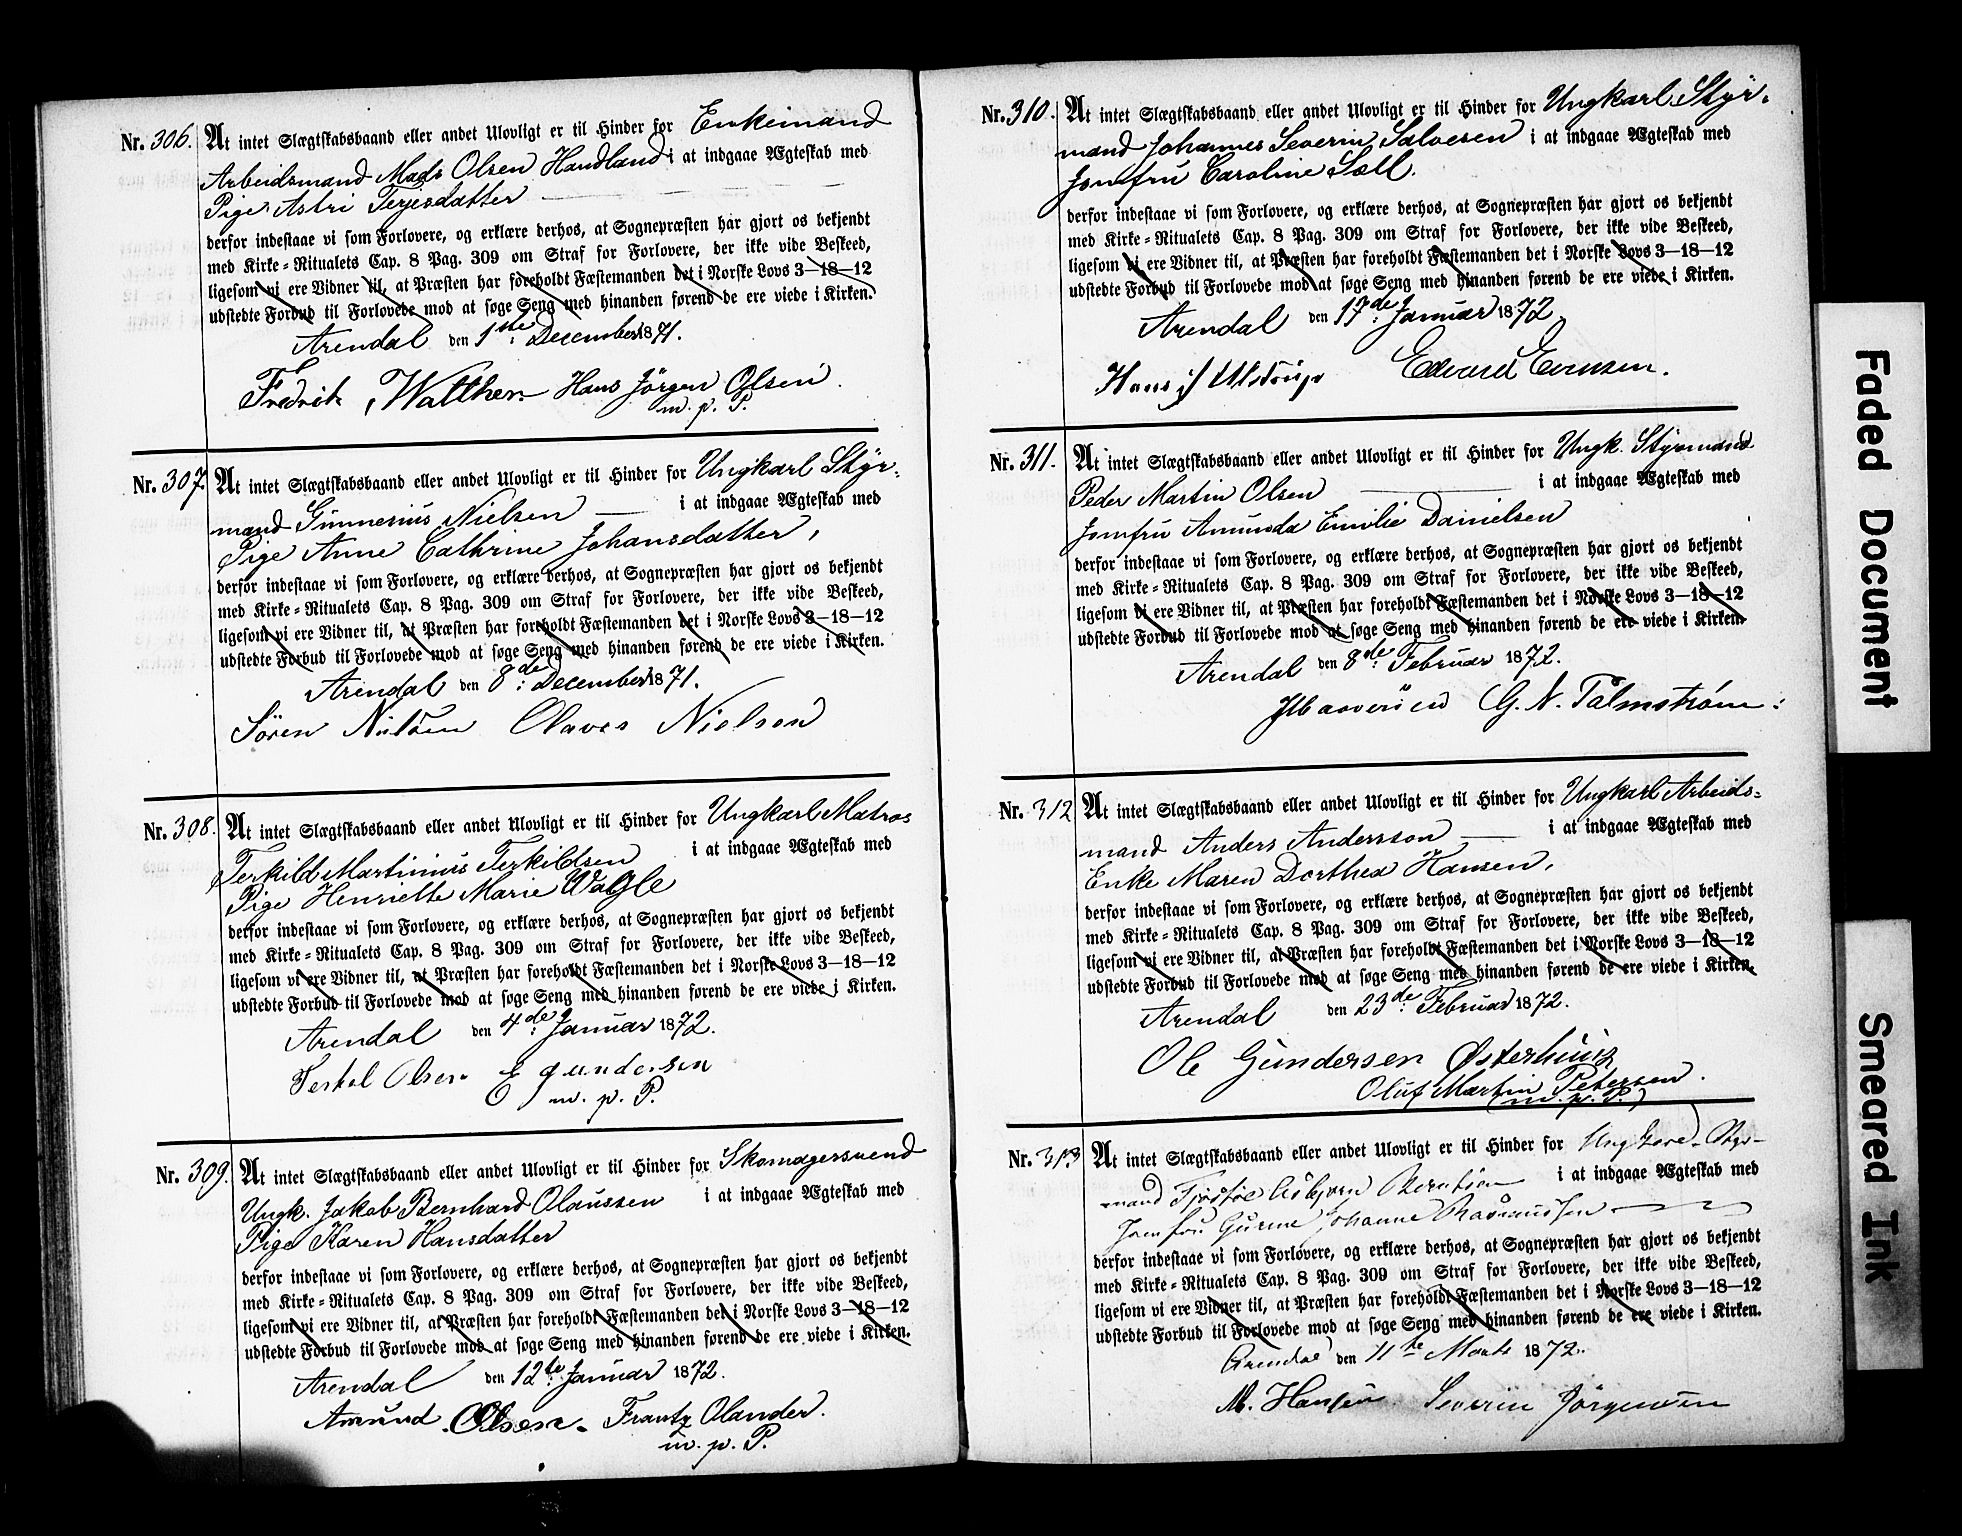 Nr. 306. At intet Slægtskabsbaand eller andet Ulovligt er til Hinder for Enkemand
Arbeidsmand Mads Olsen Handland i at indgaae Ægteskab med
Pige Astri Terjesdatter
derfor indestaae vi som Forlovere, og erklære derhos, at Sognepræsten har gjort os bekjendt
med Kirke-Ritualets Cap. 8 Pag. 309 om Straf for Forlovere, der ikke vide Beskeed,
ligesom vi ere Vidner til, at Præsten har foreholdt Fæstemanden det i Norske Lovs 3—18—12
udstedte Forbud til Forlovede mod at søge Seng med hinanden førend de ere viede i Kirken.
Arendal den 1ste December 1871.
Fredrik Walther Hans Jörgen Olsen
m. p. P.
Nr. 307. At intet Slægtskabsbaand eller andet Ulovligt er til Hinder for Ungkarl Styr-
mand Gunnerius Nielsen i at indgaae Ægteskab med
Pige Anne Cathrine Johansdatter,
derfor indestaae vi som Forlovere, og erklære derhos, at Sognepræsten har gjort os bekjendt
med Kirke-Ritualets Cap. 8 Pag. 309 om Straf for Forlovere, der ikke vide Beskeed,
ligesom vi ere Vidner til, at Præsten har foreholdt Fæstemanden det i Norske Lovs 3—18—12
udstedte Forbud til Forlovede mod at søge Seng med hinanden førend de ere viede i Kirken.
Arendal den 8de December 1871.
Sören Nielsen Olaves Nielsen
Nr. 308. At intet Slægtskabsbaand eller andet Ulovligt er til Hinder for Ungkarl Matros
Terkild Martinius Terkildsen i at indgaae Ægteskab med
Pige Henriette Marie Wagle
derfor indestaae vi som Forlovere, og erklære derhos, at Sognepræsten har gjort os bekjendt
med Kirke-Ritualets Cap. 8 Pag. 309 om Straf for Forlovere, der ikke vide Beskeed,
ligesom vi ere Vidner til, at Præsten har foreholdt Fæstemanden det i Norske Lovs 3—18—12
udstedte Forbud til Forlovede mod at søge Seng med hinanden førend de ere viede i Kirken.
Arendal den 4de Januar 1872.
Terkel Olsen E Gundersen
m. p. P.
Nr. 309. At intet Slægtskabsbaand eller andet Ulovligt er til Hinder for Skomagersvend
Ungk. Jakob Bernhard Olaussen i at indgaae Ægteskab med
Pige Karen Hansdatter
derfor indestaae vi som Forlovere, og erklære derhos, at Sognepræsten har gjort os bekjendt
med Kirke-Ritualets Cap. 8 Pag. 309 om Straf for Forlovere, der ikke vide Beskeed,
ligesom vi ere Vidner til, at Præsten har foreholdt Fæstemanden det i Norske Lovs 3—18—12
udstedte Forbud til Forlovede mod at søge Seng med hinanden førend de ere viede i Kirken.
Arendal den 12te Januar 1872.
Amund Olsen. Frantz Olander.
m. p. P.
Nr. 310. At intet Slægtskabsbaand eller andet Ulovligt er til Hinder for Ungkarl Styr-
mand Johannes Severin Salvesen i at indgaae Ægteskab med
Jomfru Caroline Sæll.
derfor indestaae vi som Forlovere, og erklære derhos, at Sognepræsten har gjort os bekjendt
med Kirke-Ritualets Cap. 8 Pag. 309 om Straf for Forlovere, der ikke vide Beskeed,
ligesom vi ere Vidner til, at Præsten har foreholdt Fæstemanden det i Norske Lovs 3—18—12
udstedte Forbud til Forlovede mod at søge Seng med hinanden førend de ere viede i Kirken.
Arendal den 17de Januar 1872.
Hans Ulstrup Edvard Evensen.
Nr. 311. At intet Slægtskabsbaand eller andet Ulovligt er til Hinder for Ungk. Styrmand
Peder Martin Olsen i at indgaae Ægteskab med
Jomfru Amunda Emilie Danielsen
derfor indestaae vi som Forlovere, og erklære derhos, at Sognepræsten har gjort os bekjendt
med Kirke-Ritualets Cap. 8 Pag. 309 om Straf for Forlovere, der ikke vide Beskeed,
ligesom vi ere Vidner til, at Præsten har foreholdt Fæstemanden det i Norske Lovs 3—18—12
udstedte Forbud til Forlovede mod at søge Seng med hinanden førend de ere viede i Kirken.
Arendal den 8de Februar 1872.
G. N. Palmstrøm
Nr. 312 At intet Slægtskabsbaand eller andet Ulovligt er til Hinder for Ungkarl Arbeids-
mand Anders Andersson i at indgaae Ægteskab med
Enke Maren Dorthea Hansen,
derfor indestaae vi som Forlovere, og erklære derhos, at Sognepræsten har gjort os bekjendt
med Kirke-Ritualets Cap. 8 Pag. 309 om Straf for Forlovere, der ikke vide Beskeed,
ligesom vi ere Vidner til, at Præsten har foreholdt Fæstemanden det i Norske Lovs 3—18—12
udstedte Forbud til Forlovede mod at søge Seng med hinanden førend de ere viede i Kirken.
Arendal den 23de Februar 1872.
Ole Gundersen Østerhuus
Oluf Martin Petersen.
(m. p. P.)
Nr. 313 At intet Slægtskabsbaand eller andet Ulovligt er til Hinder for Ungkarl Styr-
mand Asbjørn Berntsen i at indgaae Ægteskab med
Jomfru Gurine Johanne Rasmussen
derfor indestaae vi som Forlovere, og erklære derhos, at Sognepræsten har gjort os bekjendt
med Kirke-Ritualets Cap. 8 Pag. 309 om Straf for Forlovere, der ikke vide Beskeed,
ligesom vi ere Vidner til, at Præsten har foreholdt Fæstemanden det i Norske Lovs 3—18—12
udstedte Forbud til Forlovede mod at søge Seng med hinanden førend de ere viede i Kirken.
Arendal den 11te Marts 1872.
M. Hansen Severin Jörgensen
Faded Document
Smeared Ink